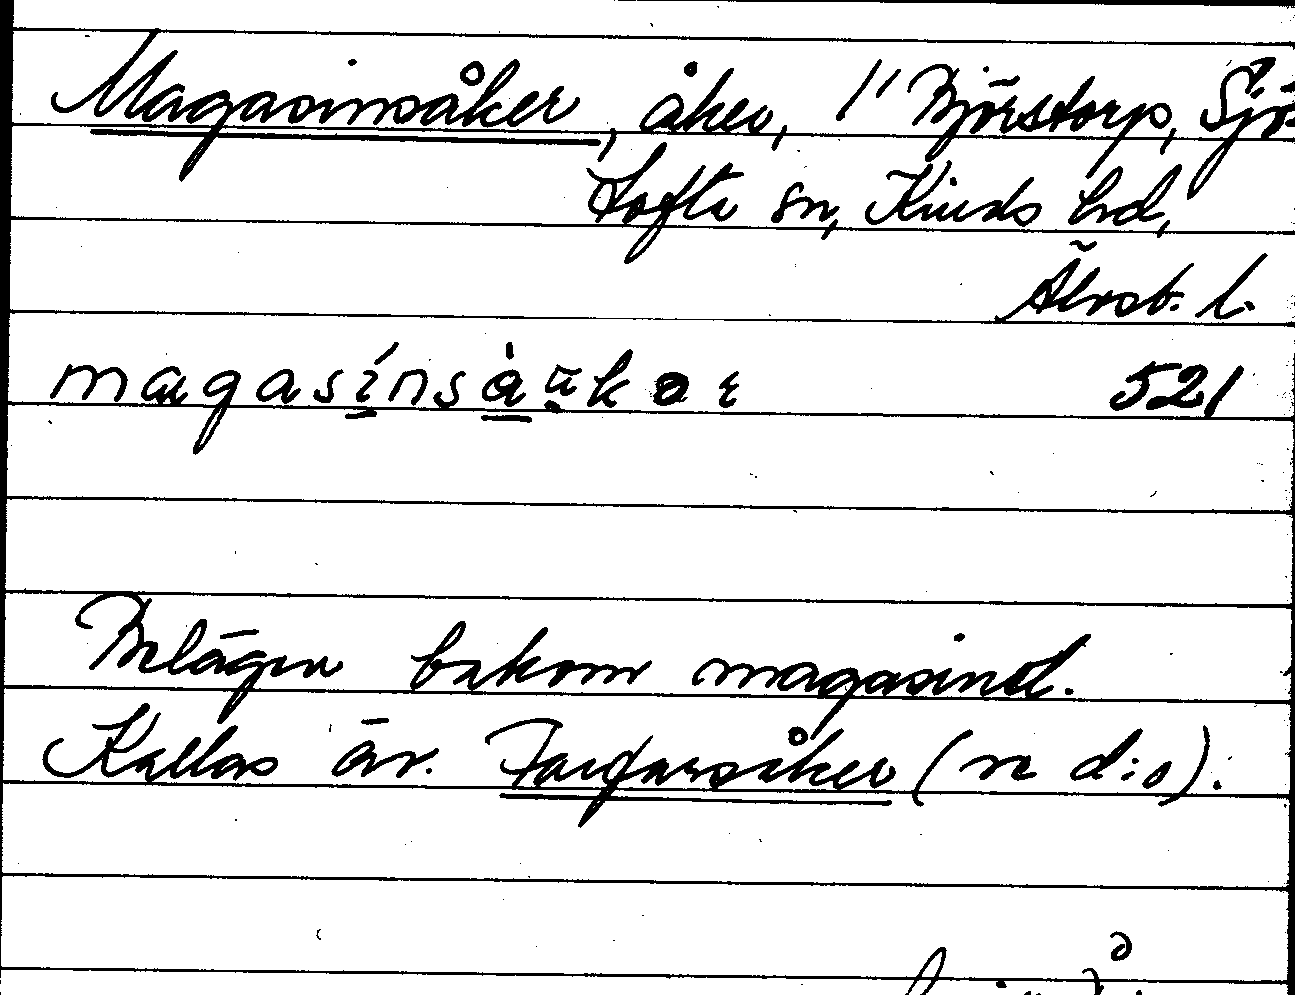 Magasinsåker, åker, 1/1 Björstorp, Sjö-
tofta sn, Kinds hrd,
Älvsb. l.
521
Belägen bakom magasinet.
Kallas äv. Fargarsåker (se d:o).